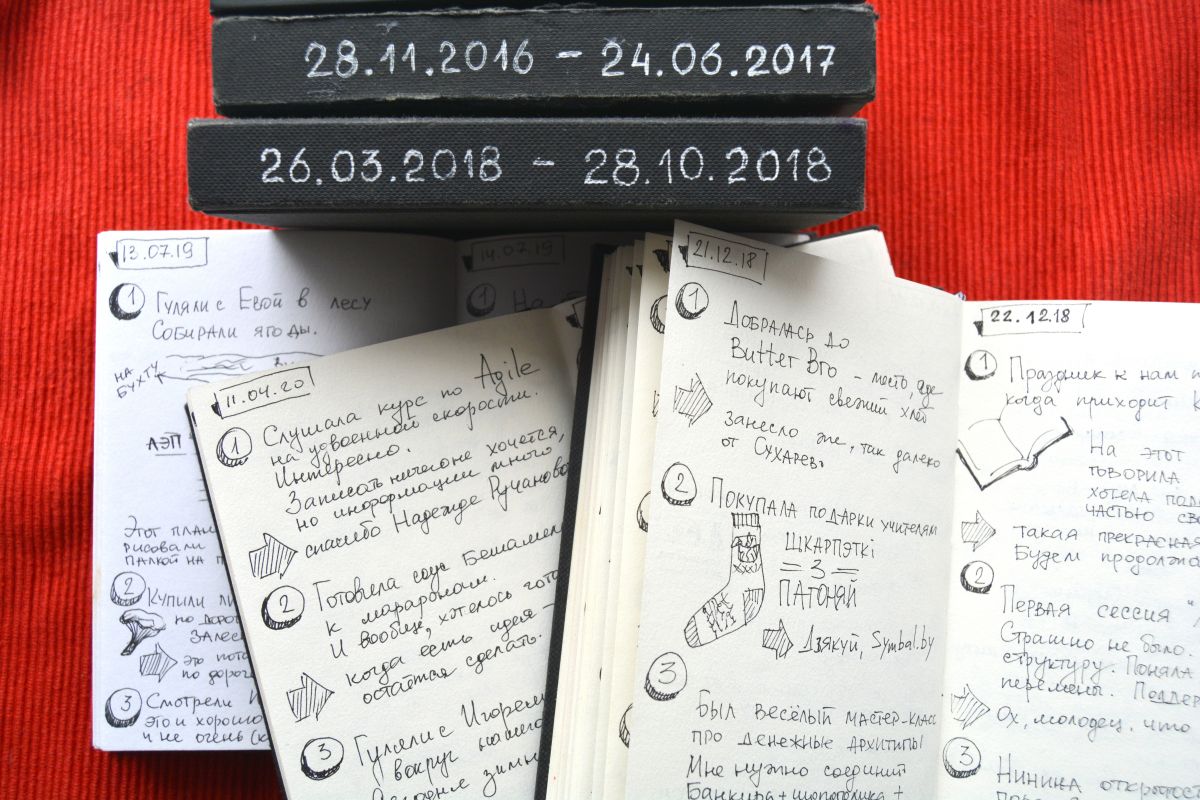 28.11.2016 - 24.06.2017
26.03.2018 - 28.10.2018
13.07.19
1 Гуляли с Евой в лесу
Собирали ягоды.
НА БУХТУ
ЛЭП
Этот план
рисовали
палкой на
2 Купили
по дороге
Залес
это
по дорог
3 Смотрели
это и хорошо
и не очень
14.07.19
1 На
11.04.20
1 Слушала курс по Agile
на удвоенной скорости.
Интересно.
Записать ничего не хочется,
но информации много
спасибо Надежде Ручановой
2 Готовила соус Бешамель
к макаронам.
И вообще, хотелось гот
когда есть идея –
остаётся сделать.
3 Гуляли с Игорем
вокруг нашего
зимн
21.12.18
1 Добралась до
Butter Bro – место, где
покупают свежий хлеб
занесло же, так далеко
от Сухарево
2 Покупала подарки учителям
Шкарпэткі
= 3 =
ПАТОНЯЙ
Дзякуй, Symbal.by
3 Был весёлый мастер-класс
про денежные архитипы
Мне нужно соединить
Банкира + шопоголика +
22.12.18
1 Праздник к нам п
когда приходит
На этот
говорила
хотела под
частью сво
такая прекрасная
Будем продолжа
2 Первая сессия
Страшно не было.
структуру. Поняла
перемены. Поддер
Ох, молодец, что
3 Нинина открытос